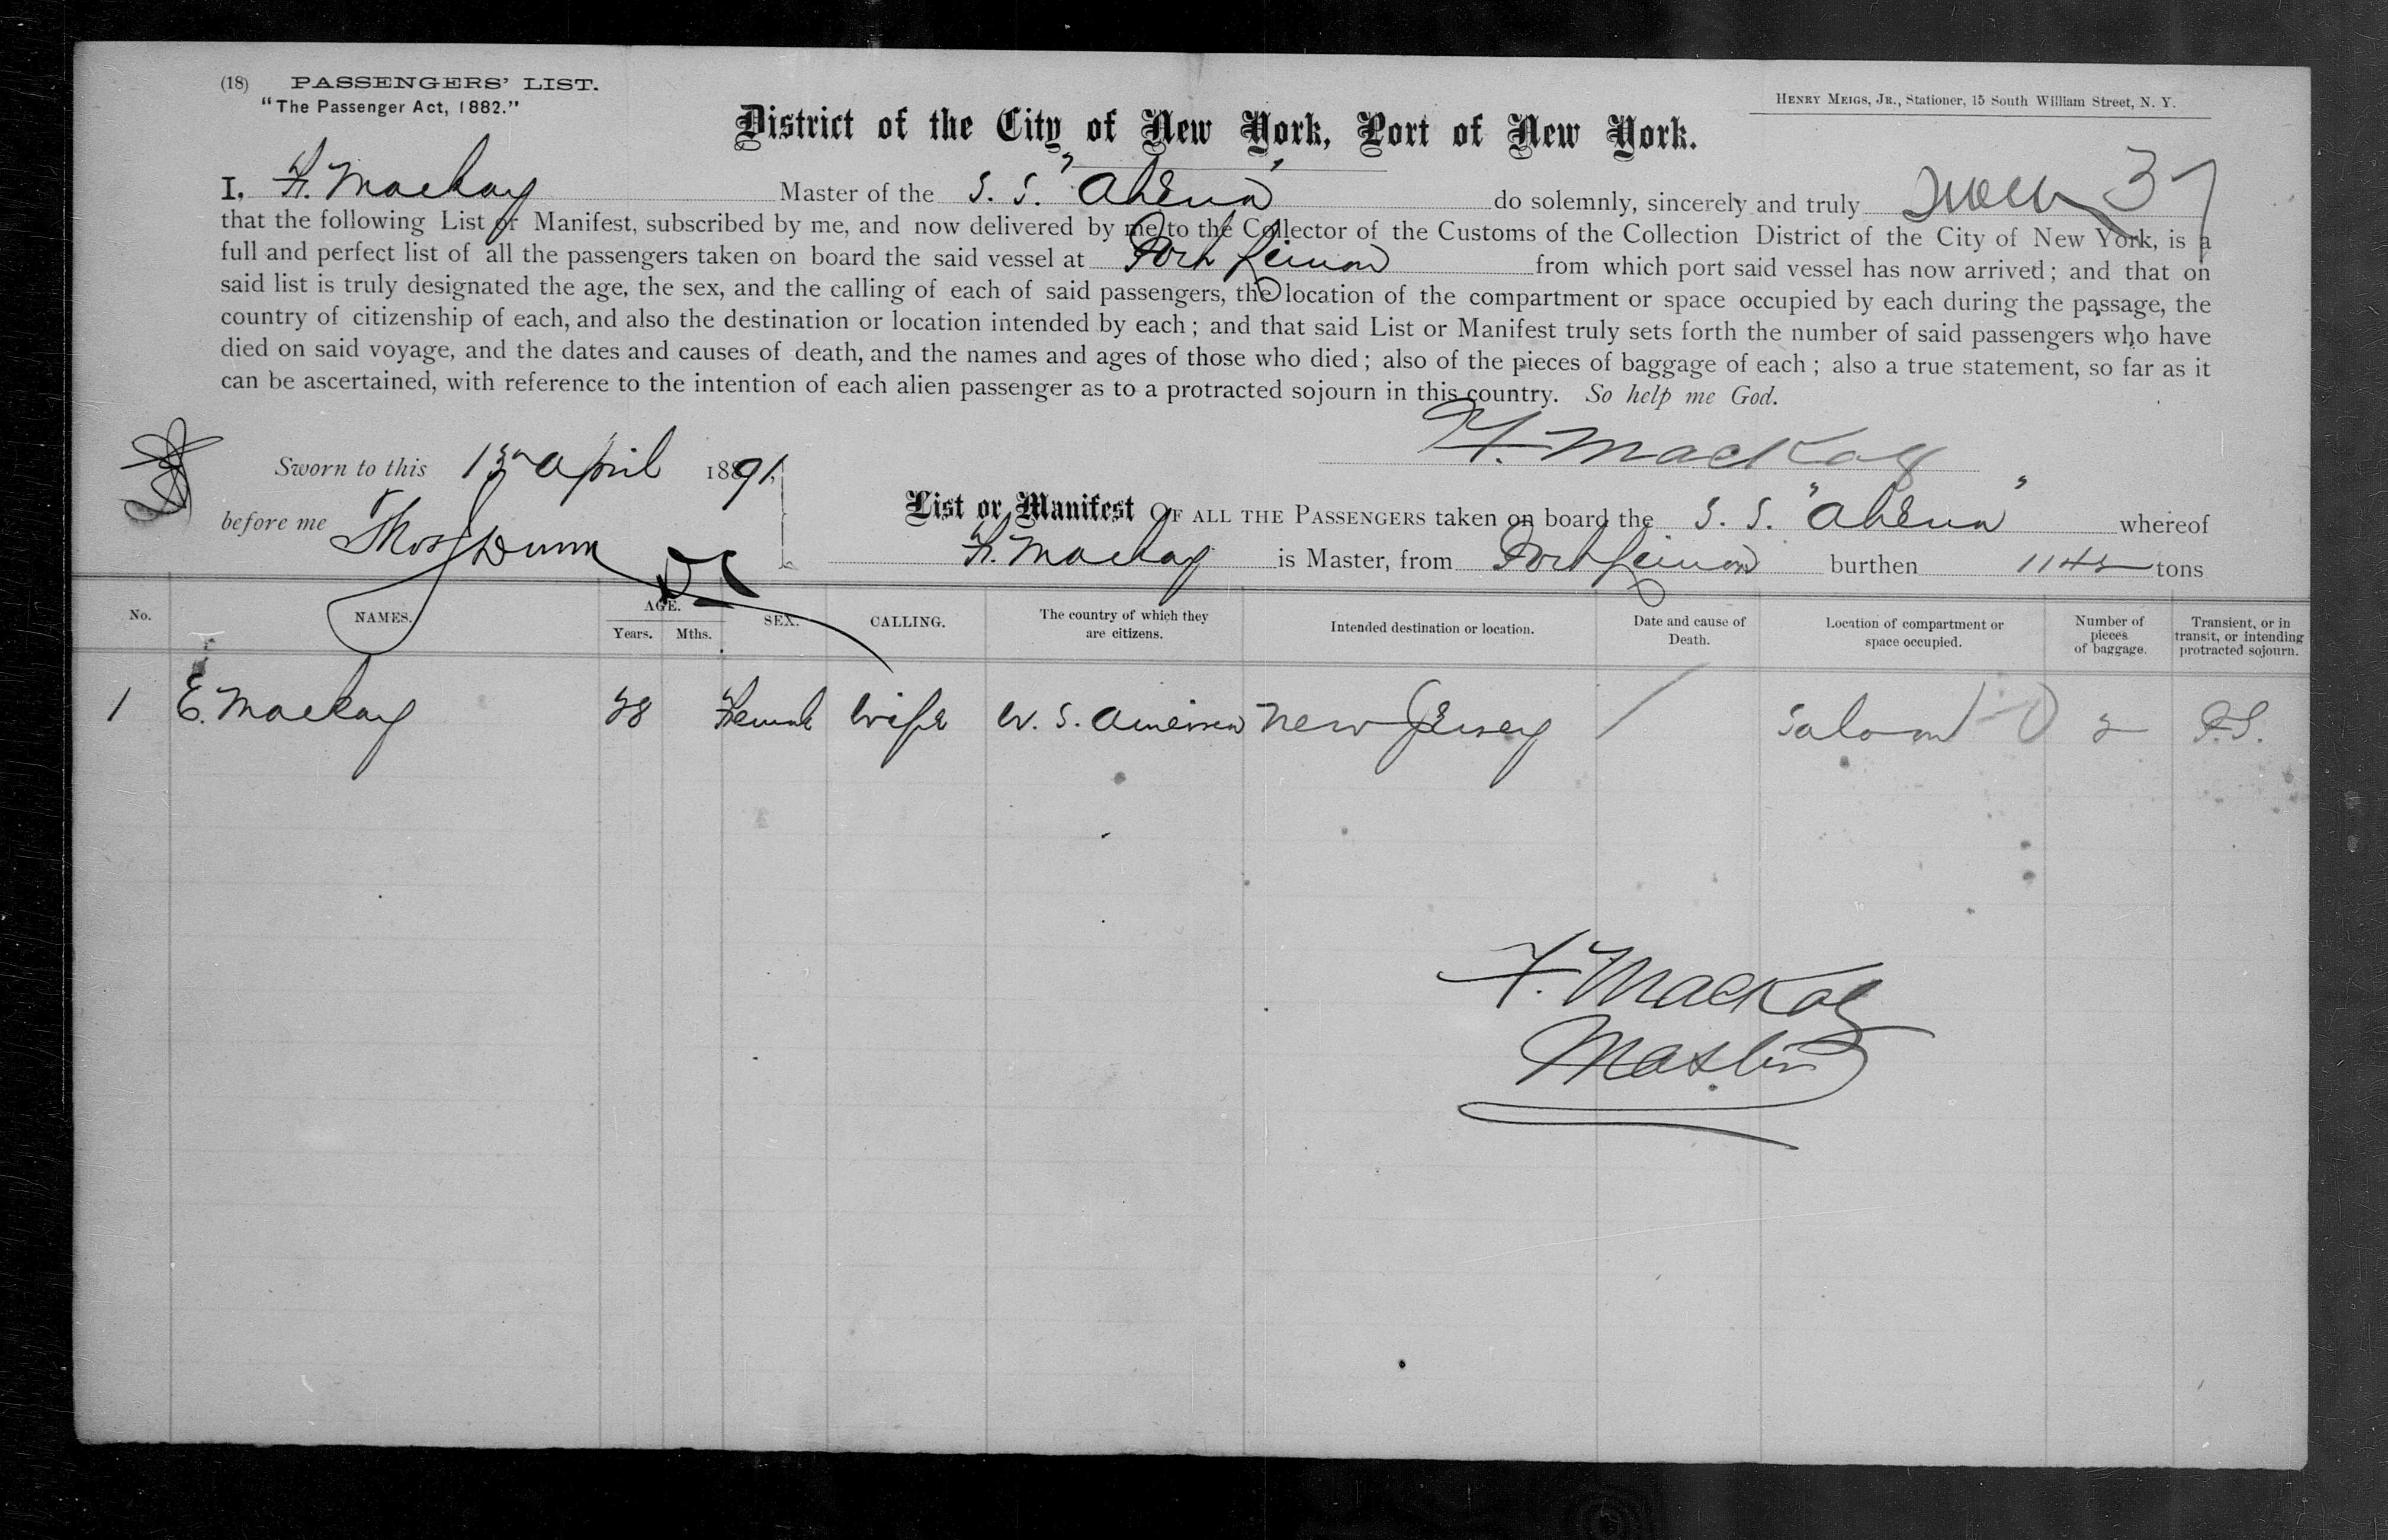 (18) PASSENGERS' LIST.
"The Passenger Act, 1882."
HENRY MEIGS, JR., Stationer, 15 South William Street, N. Y.
District of the City of New York, Port of New York.
I, F. Mackay Master of the S. S. "Athena" do solemnly, sincerely and truly swear 37
that the following List or Manifest, subscribed by me, and now delivered by me to the Collector of the Customs of the Collection District of the City of New York, is a
full and perfect list of all the passengers taken on board the said vessel at Port Limon from which port said vessel has now arrived; and that on
said list is truly designated the age, the sex, and the calling of each of said passengers, the location of the compartment or space occupied by each during the passage, the
country of citizenship of each, and also the destination or location intended by each; and that said List or Manifest truly sets forth the number of said passengers who have
died on said voyage, and the dates and causes of death, and the names and ages of those who died; also of the pieces of baggage of each; also a true statement, so far as it
can be ascertained, with reference to the intention of each alien passenger as to a protracted sojourn in this country. So help me God.
F. Mackay
Sworn to this 13 April 1891,
before me Thos Dunn
List or Manifest OF ALL THE PASSENGERS taken on board the S. S. "Athena" whereof
F. Mackay is Master, from Port Limon burthen tons
No. NAMES. AGE. Years. Mths. SEX. CALLING. The country of which they are citizens. Intended destination or location. Date and cause of Death. Location of compartment or space occupied. Number of pieces of baggage. Transient, or in transit, or intending protracted sojourn.
1 E. Mackay 28 Female Wife U. S. America New Jersey / Saloon 2 P.S.
F. Mackay
Master